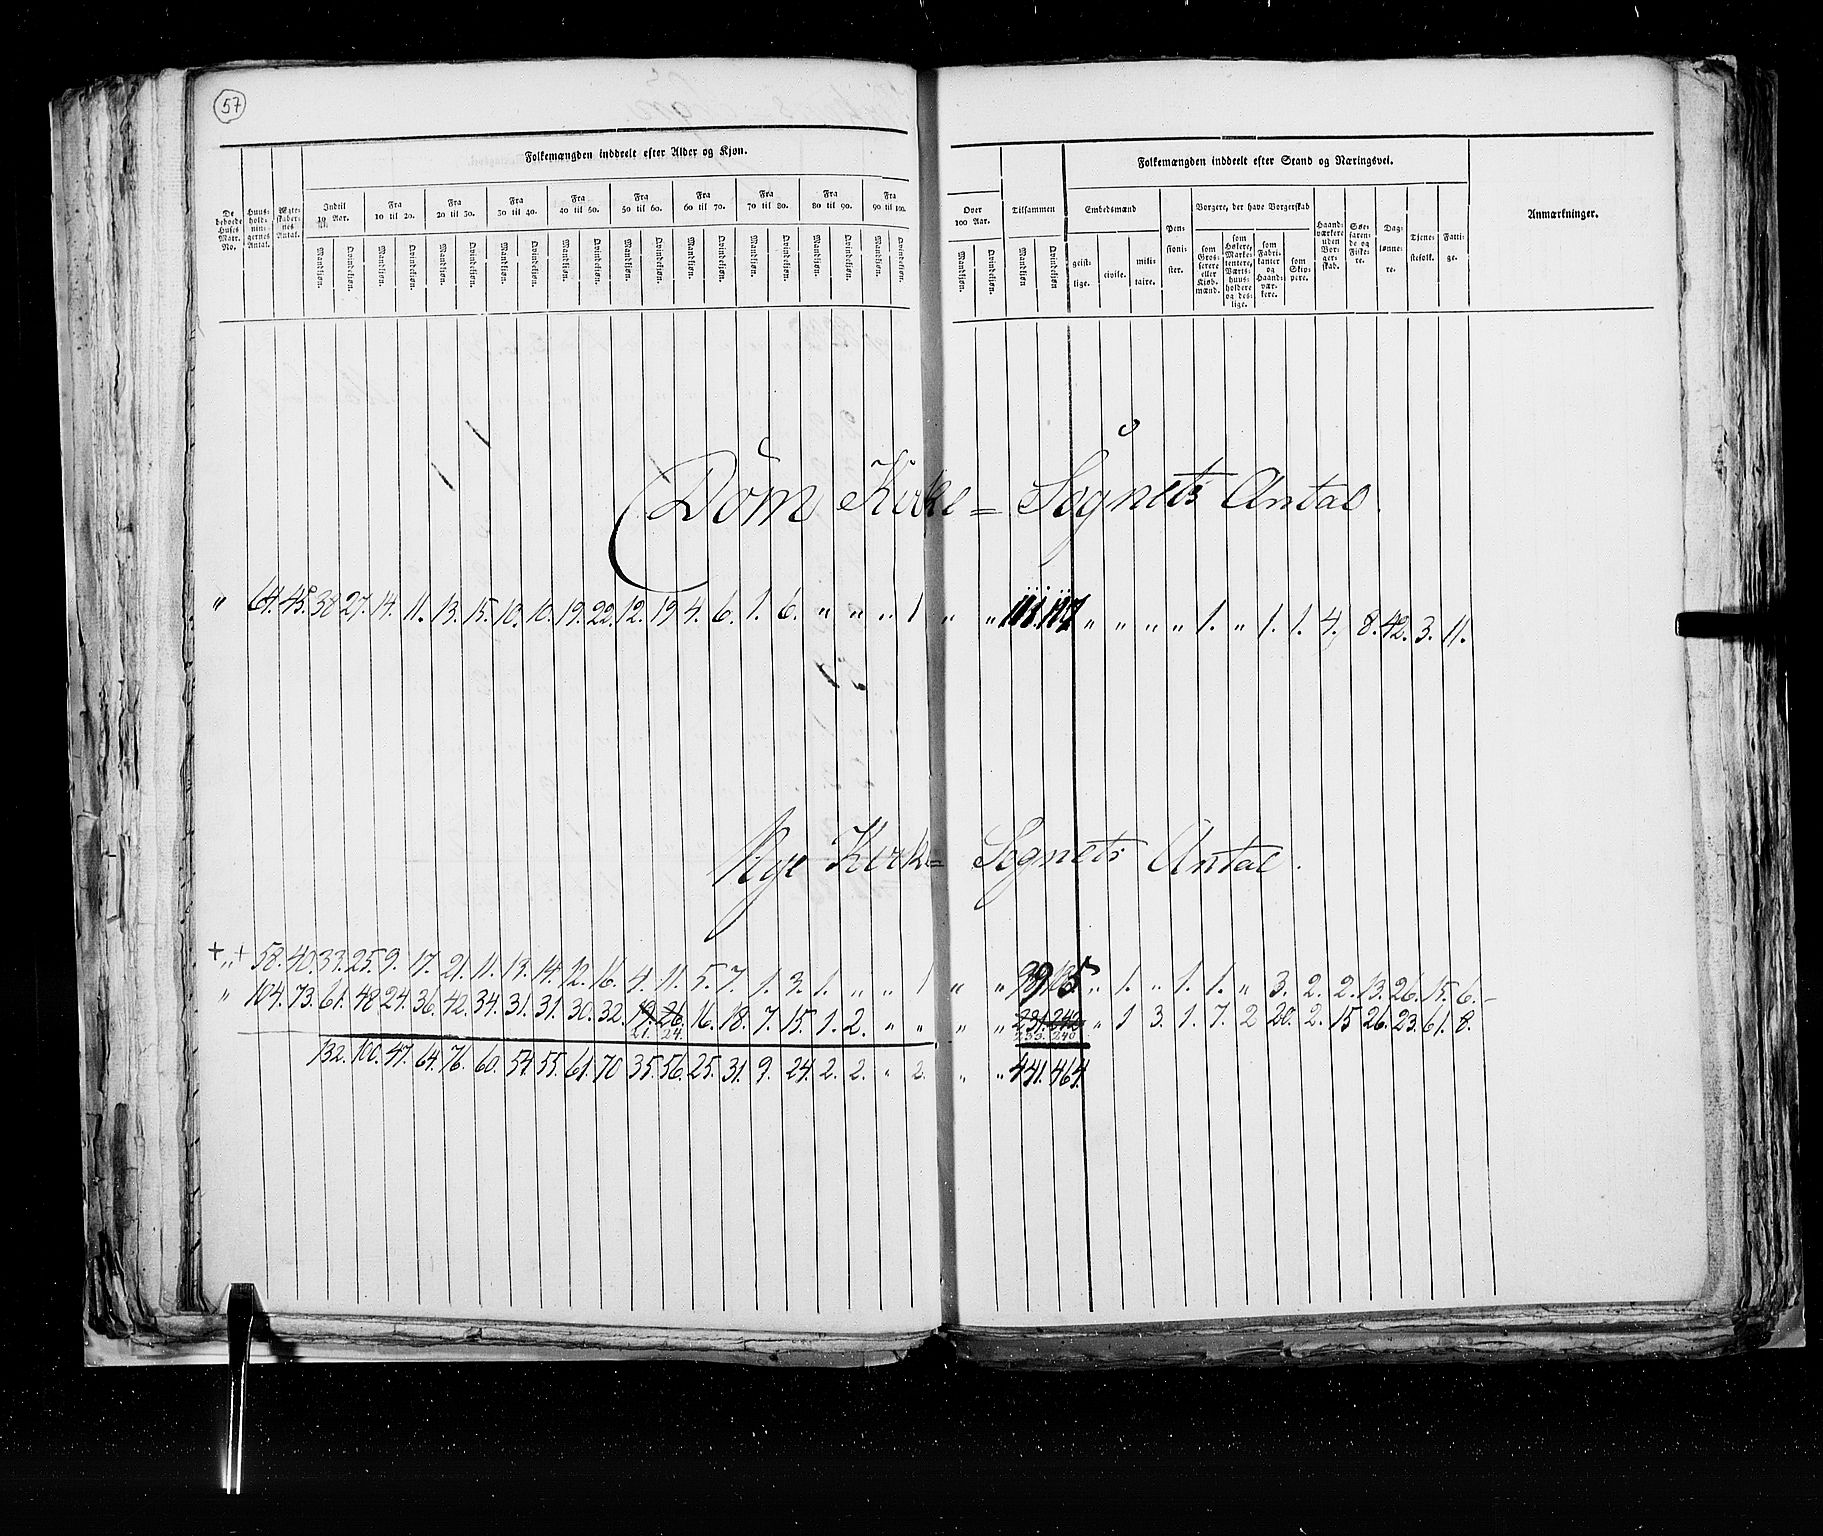 57
Folkemængden inddeelt efter Alder og Kjøn.
Folkemængden inddeelt efter Stand og Næringsvei.
De beboede Huses Matr. No.
Huus-hold-nin-gernes Antal.
Ægte-skaber-nes Antal.
Indtil 10 Aar.
Fra 10 til 20.
Fra 20 til 30.
Fra 30 til 40.
Fra 40 til 50.
Fra 50 til 60.
Fra 60 til 70.
Fra 70 til 80.
Fra 80 til 90.
Fra 90 til 100.
Over 100 Aar.
Tilsammen
Embedsmænd
Pen-sioni-ster.
Borgere, der have Borgerskab
Haand-værkere uden Bor-ger-skab.
Søe-faren-de og Fiske-re.
Dag-lønne-re.
Tjene-stefolk.
Fatti-ge.
Anmærkninger.
Mandkjøn. Qvindekjøn. Mandkjøn. Qvindekjøn. Mandkjøn. Qvindekjøn. Mandkjøn. Qvindekjøn. Mandkjøn. Qvindekjøn. Mandkjøn. Qvindekjøn. Mandkjøn. Qvindekjøn. Mandkjøn. Qvindekjøn. Mandkjøn. Qvindekjøn. Mandkjøn. Qvindekjøn. Mandkjøn. Qvindekjøn. Mandkjøn Qvindekjøn
geist-lige.
civile.
mili-taire.
som Gros-serere eller Kiøb-mænd.
som Høkere, Marke-tentere, Værts-huus-holdere og des-lige.
som Fabri-kanter og Haand-vær-kere.
som Skip-pere.
Dom Kirke= Sognets Antal.
" 64. 45. 38 27. 14. 11. 13. 15. 10. 10. 19. 22. 12. 19 4. 6. 1. 6. " " " 1 " " 111. 117 " " " " 1. " 1. 1. 4. 8. 42. 3. 11.
Nye Kirke= Sognets Antal.
+ " + 58. 40. 33. 25. 9. 17. 21. 11. 13. 14. 12. 16. 4. 11. 5. 7. 1. 3. 1. " " 1 " " " 1. " 1. 1. " 3. 2. 2. 13. 26. 15. 6. –
" 104. 73. 61. 48 24. 36. 42. 34. 31. 31. 30. 32. 19. 26. 16. 18. 7. 15. 1. 2. " " " " 231. 242 " 1 3. 1. 7. 2 20. 2. 15 26. 23. 61. 8.
21. 24. 233. 240
132. 100. 47. 64. 76. 60. 54. 55. 61. 70 35. 56. 25. 31. 9. 24. 2. 2. " 2. " " 441. 464.